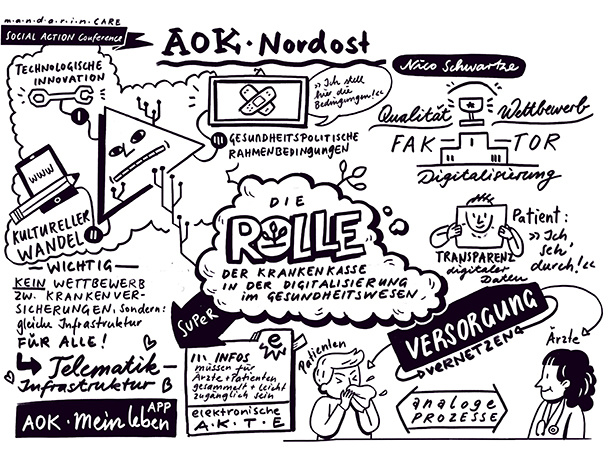 m·a·n·d·a·r·i·n·CARE
SOCIAL ACTION Conference
AOK · Nordost
Nico Schwartze
TECHNOLOGISCHE
INNOVATION
I
III
GESUNDHEITSPOLITISCHE
RAHMENBEDINGUNGEN
»Ich stell
hier die
Bedingungen!««
Qualität Wettbewerb
FAK TOR
Digitalisierung
WWW
KULTURELLER
WANDEL
II
DIE
ROLLE
DER KRANKENKASSE
IN DER DIGITALISIERUNG
im GESUNDHEITSWESEN
TRANSPARENZ
digitaler
Daten
Patient:
»Ich
seh'
durch!««
WICHTIG
KEIN WETTBEWERB
ZW. KRANKENVER-
SICHERUNGEN, sondern:
gleiche Infrastruktur
FÜR ALLE!
Telematik-
Infrastruktur
AOK·Mein Leben
APP
SUPER
e
INFOS
müssen für
Ärzte + Patienten
gesammelt + leicht
zugänglich sein
elektronische
A·K·T·E
Patienten
VERSORGUNG
VERNETZEN
Ärzte
analoge
PROZESSE